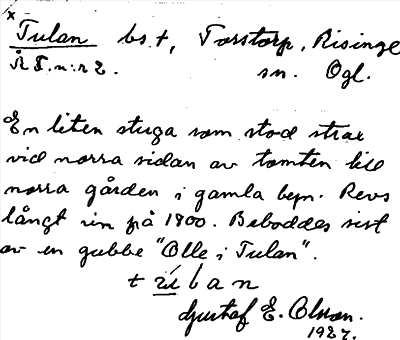 x
Tulan bst, Torstorp, Risinge
R T. n:r 2. sn. Ögl.
En liten stuga som stod strax
vid norra sidan av tomten till
norra gården i gamla byn. Revs
långt in på 1800. Beboddes sist
av en gubbe "Olle i Tulan".
Gustaf E. Olson.
1927.